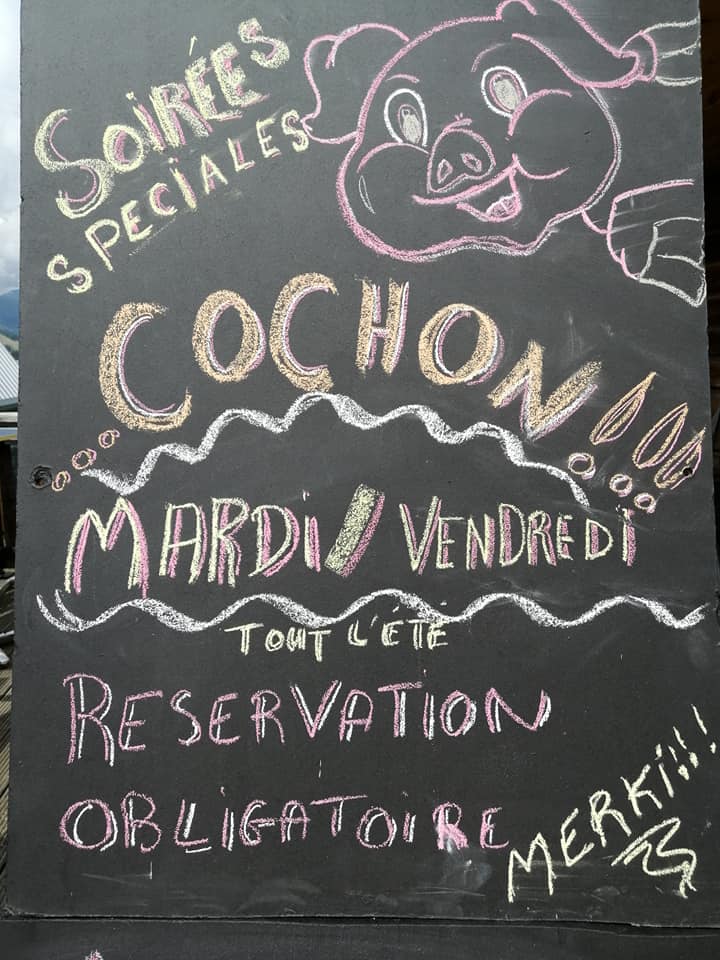 SOIRÉES
SPECIALES
COCHON!!!
MARDI/VENDREDI
TOUT L'ÉTÉ
RESERVATION
OBLIGATOIRE
MERKI!!!